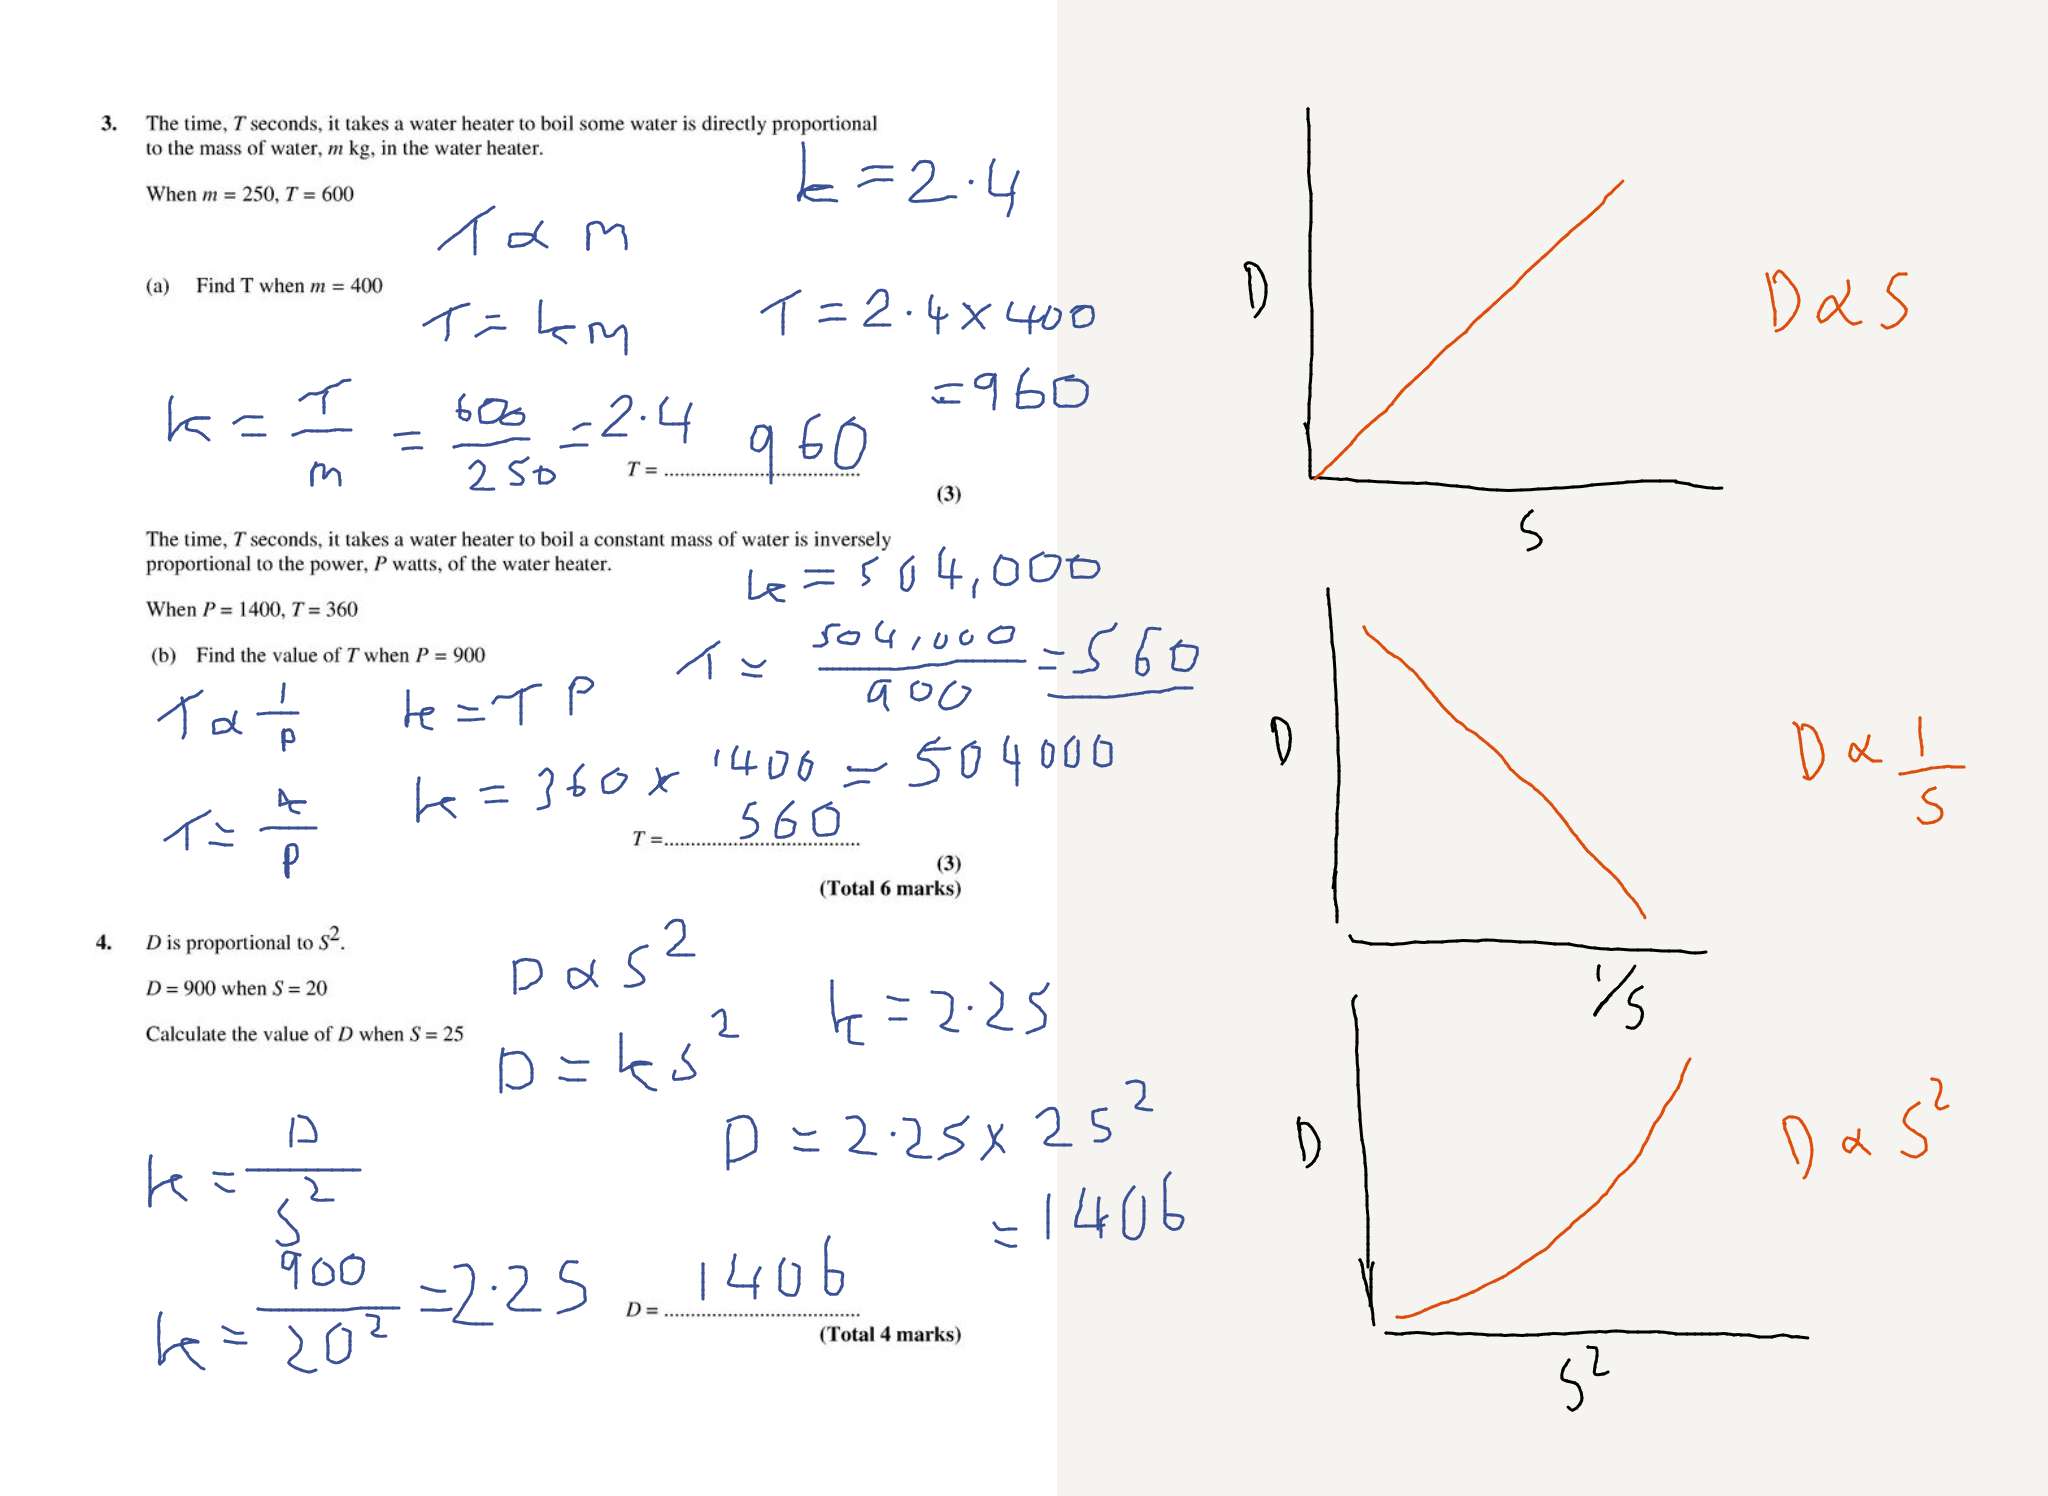 3. The time, T seconds, it takes a water heater to boil some water is directly proportional
to the mass of water, m kg, in the water heater.
k = 2.4
When m = 250, T = 600
T ∝ m
(a) Find T when m = 400
T = km
T = 2.4 × 400
= 960
k = T/m = 600/250 = 2.4
T = .......... 960
(3)
The time, T seconds, it takes a water heater to boil a constant mass of water is inversely
proportional to the power, P watts, of the water heater.
k = 504,000
When P = 1400, T = 360
(b) Find the value of T when P = 900
T = 504,000/900 = 560
T ∝ 1/P
k = TP
k = 360 × 1400 = 504000
T = k/P
T = .......... 560
(3)
(Total 6 marks)
4. D is proportional to S².
D ∝ S²
D = 900 when S = 20
k = 2.25
Calculate the value of D when S = 25
D = kS²
D = 2.25 × 25²
= 1406
k = D/S²
k = 900/20² = 2.25
D = .......... 1406
(Total 4 marks)
D
D ∝ S
S
D
D ∝ 1/S
1/S
D
D ∝ S²
S²